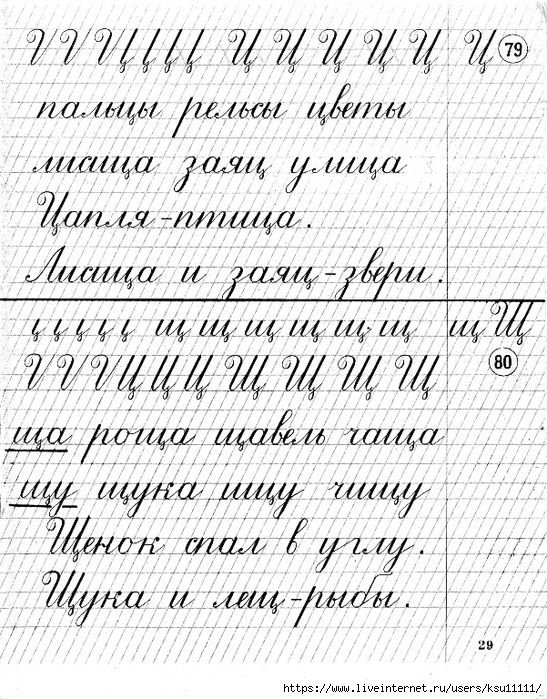 Ц Ц Ц Ц Ц Ц 79
пальцы рельсы цветы
лисица заяц улица
Цапля-птица.
Лисица и заяц-звери.
щ щ щ щ щ щ щ Щ
Ц Ц Ц Щ Щ Щ Щ 80
ща роща щавель чаща
щу щука ищу чищу
Щенок спал в углу.
Щука и лещ-рыбы.
29
https://www.liveinternet.ru/users/ksu11111/